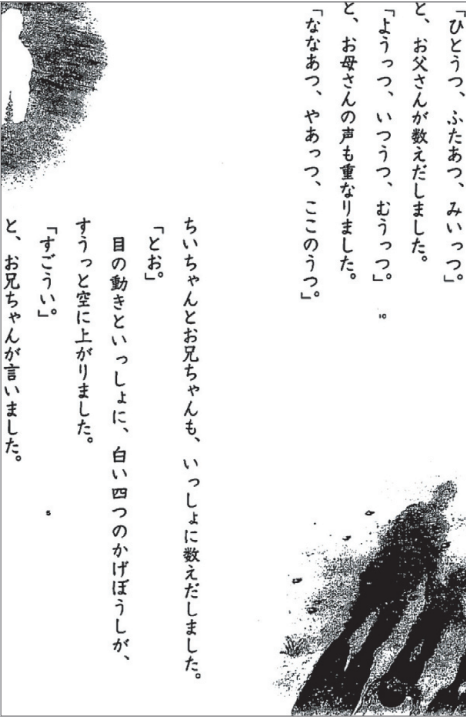 「ひとうつ、ふたあつ、みいっつ。」
と、お父さんが数えだしました。
「ようっつ、いつうつ、むうっつ。」
と、お母さんの声も重なりました。
「ななあつ、やあっつ、ここのうつ。」
ちいちゃんとお兄ちゃんも、いっしょに数えだしました。
「とお。」
目の動きといっしょに、白い四つのかげぼうしが、
すうっと空に上がりました。
「すごうい。」
と、お兄ちゃんが言いました。
10
5